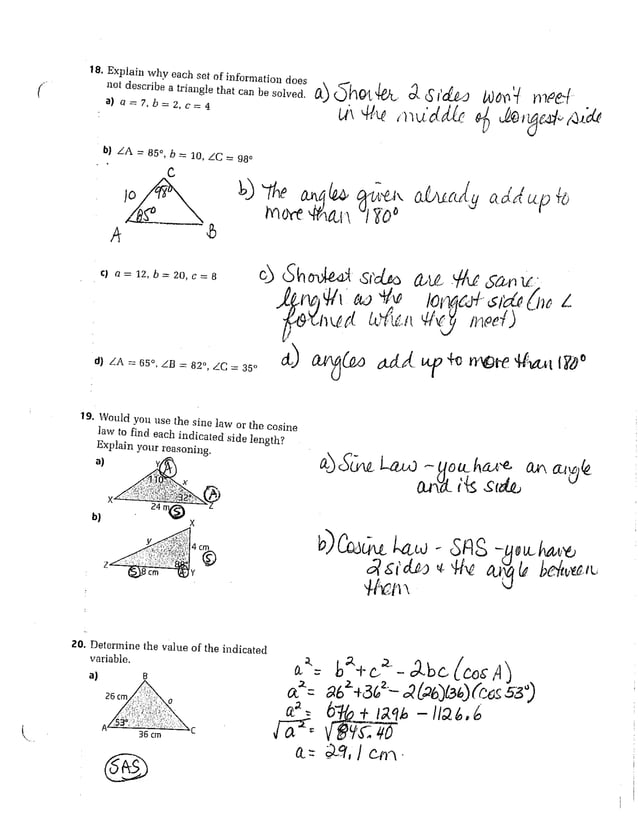 18. Explain why each set of information does
not describe a triangle that can be solved.
a) a = 7, b = 2, c = 4
a) Shorter 2 sides won't meet
in the middle of longest side
b) ∠A = 85°, b = 10, ∠C = 98°
C
10
98°
85°
A
B
b) The angles given already add up to
more than 180°
c) a = 12, b = 20, c = 8
c) Shortest sides are the same
length as the longest side (no ∠
formed when they meet)
d) ∠A = 65°, ∠B = 82°, ∠C = 35°
d) angles add up to more than 180°
19. Would you use the sine law or the cosine
law to find each indicated side length?
Explain your reasoning.
a)
Y
A
110°
x
32°
A
X
24 m
S
Z
a) Sine Law - you have an angle
and its side
b)
X
y
4 cm
S
Z
S
8 cm
A
Y
b) Cosine Law - SAS - you have
2 sides & the angle between
them
20. Determine the value of the indicated
variable.
a)
B
26 cm
a
53°
A
C
36 cm
SAS
a² = b² + c² - 2bc (cos A)
a² = 26² + 36² - 2(26)(36)(cos 53°)
a² = 676 + 1296 - 1126.6
√a² = √845.40
a = 29.1 cm.